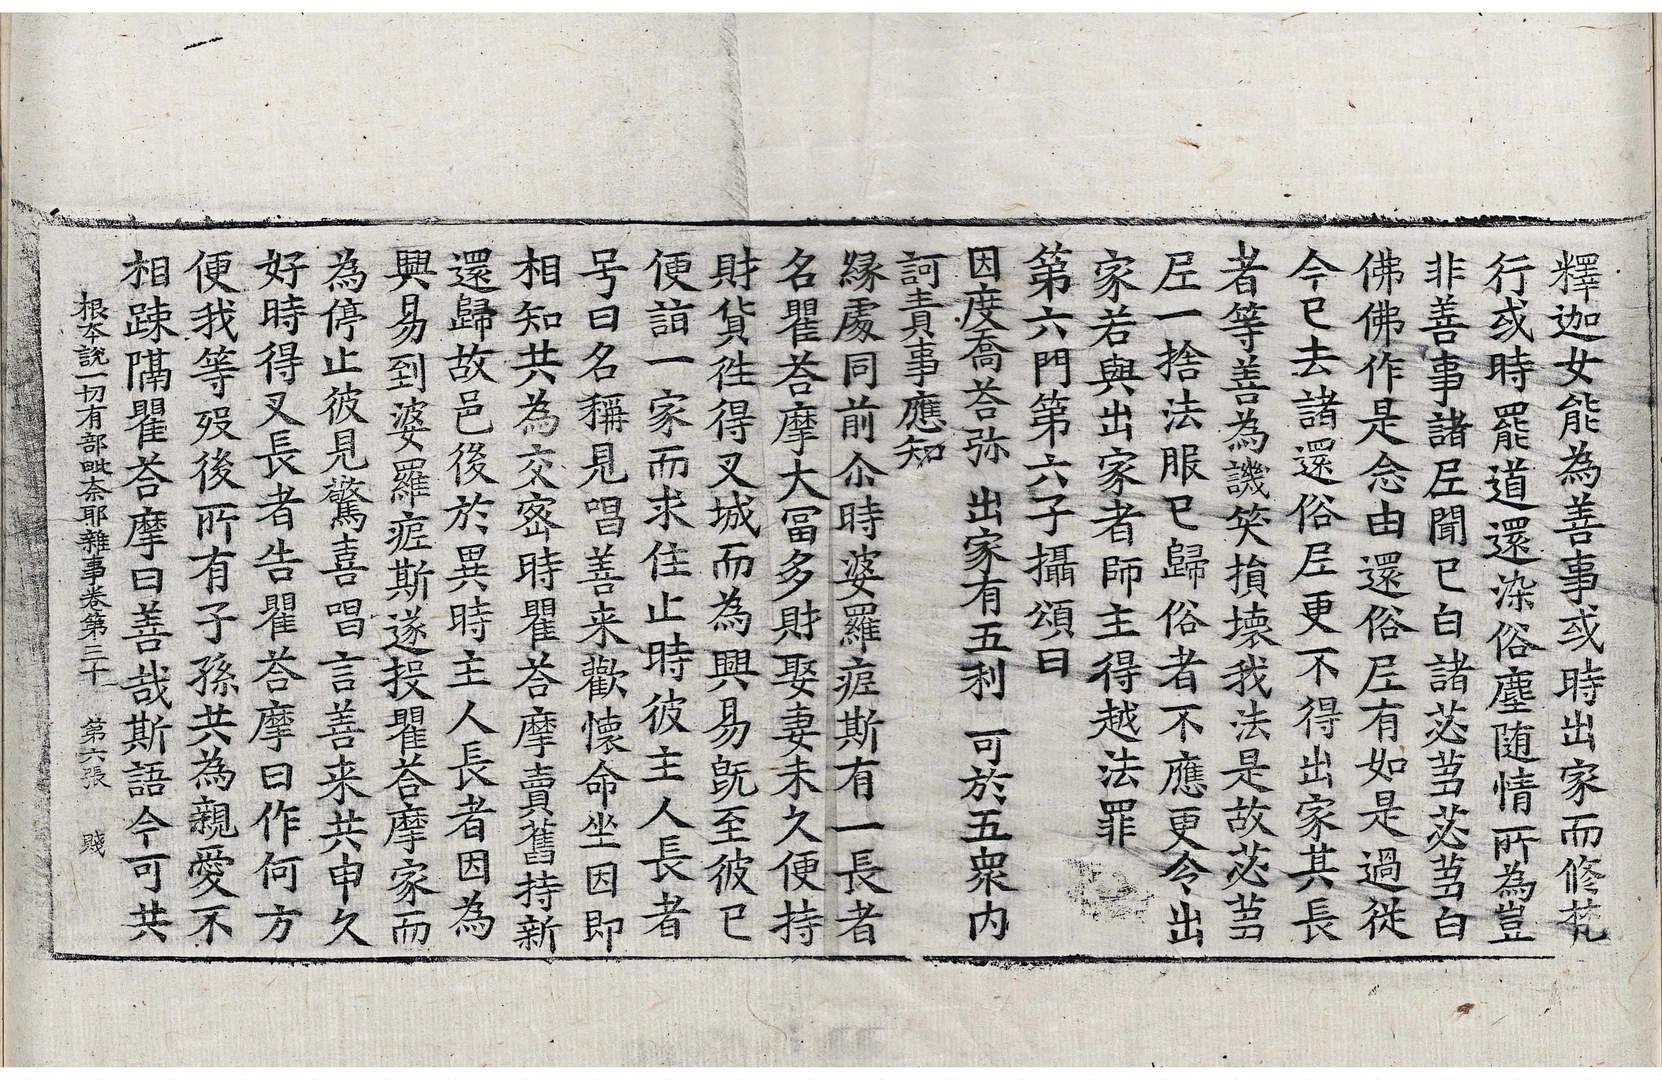 釋迦女能為善事或時出家而修梵
行或時罷道還染俗塵随情所為豈
非善事諸𡰱聞已白諸苾芻苾芻白
佛佛作是念由還俗𡰱有如是過從
今已去諸還俗𡰱更不得出家其長
者等善為譏笑損壞我法是故苾芻
𡰱一捨法服已歸俗者不應更令出
家若與出家者師主得越法罪
第六門第六子攝頌曰
因度喬荅弥 出家有五利 可於五衆內
訶責事應知
緣處同前尒時婆羅痆斯有一長者
名瞿荅摩大冨多財娶妻未久便持
財貨徃得叉城而為興易既至彼已
便詣一家而求住止時彼主人長者
号曰名稱見唱善来歡懷命坐因即
相知共為交密時瞿荅摩賣舊持新
還歸故邑後於異時主人長者因為
興易到婆羅痆斯遂投瞿荅摩家而
為停止彼見驚喜唱言善来共申久
好時得叉長者告瞿荅摩曰作何方
便我等歿後所有子孫共為親愛不
相踈隔瞿荅摩曰善哉斯語今可共
根本說一切有部毗奈耶雜事卷第三十 第六張 賤